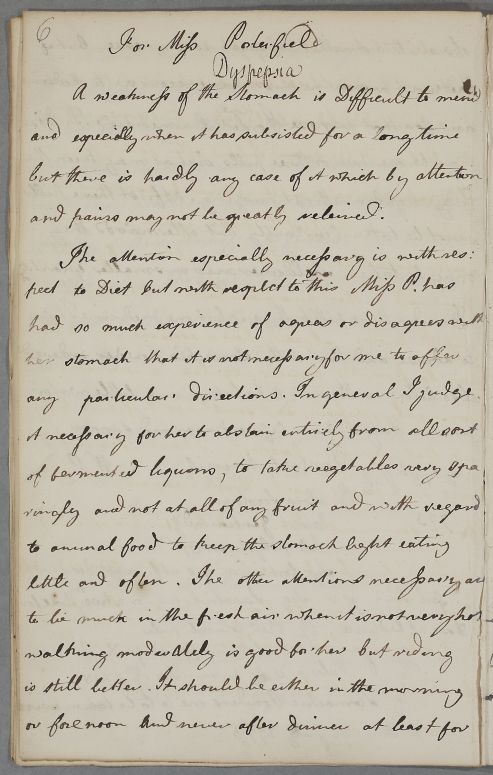 6
For Miss Porterfield
Dyspepsia
A weakness of the Stomach is Difficult to mend
and especially when it has subsisted for a long time
but there is hardly any case of it which by attention
and pains may not be greatly releived.
The attention especially necessary is with res:
pect to Diet but with respect to this Miss P. has
had so much experience of agrees or disagrees with
her stomach that it is not necessary for me to offer
any particular directions. In general I judge
it necessary for her to abstain entirely from all sort
of fermented liquors, to take vegetables very spa
ringly and not at all of any fruit and with regard
to animal food to keep the stomach light eating
little and often. The other attentions necessary are
to be much in the fresh air when it is not very hot
walking moderately is good for her but riding
is still better. It should be either in the morning
or forenoon and never after dinner at least for